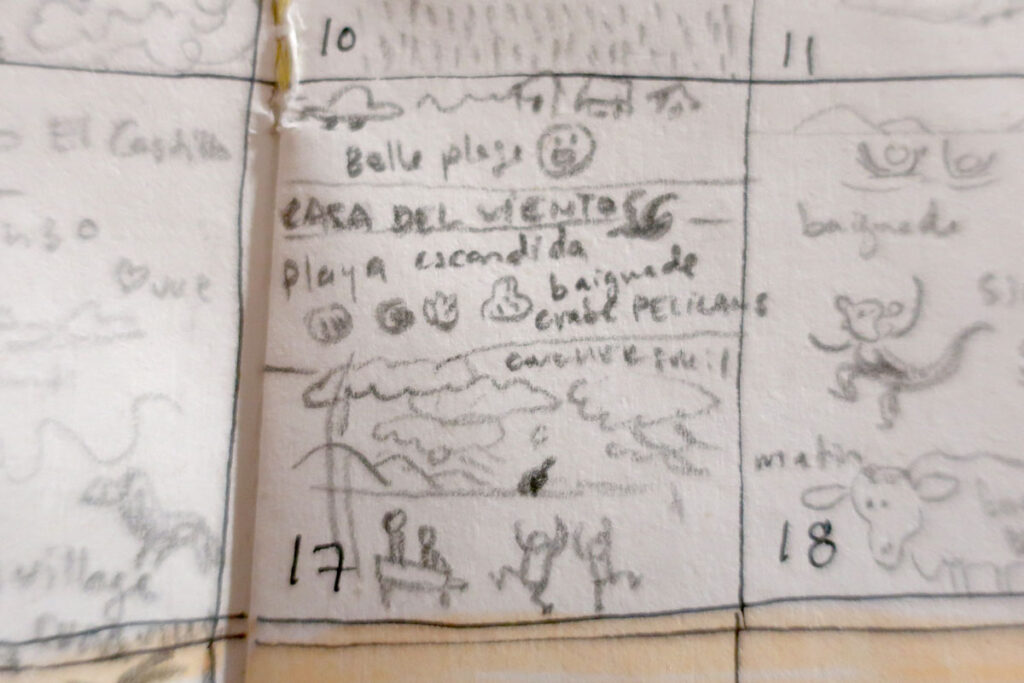 10
11
El Castillo
vue
village
Belle plage
CASA DEL VIENTO
playa escondida
baignade
crabe PELICANS
17
baignade
matin
18